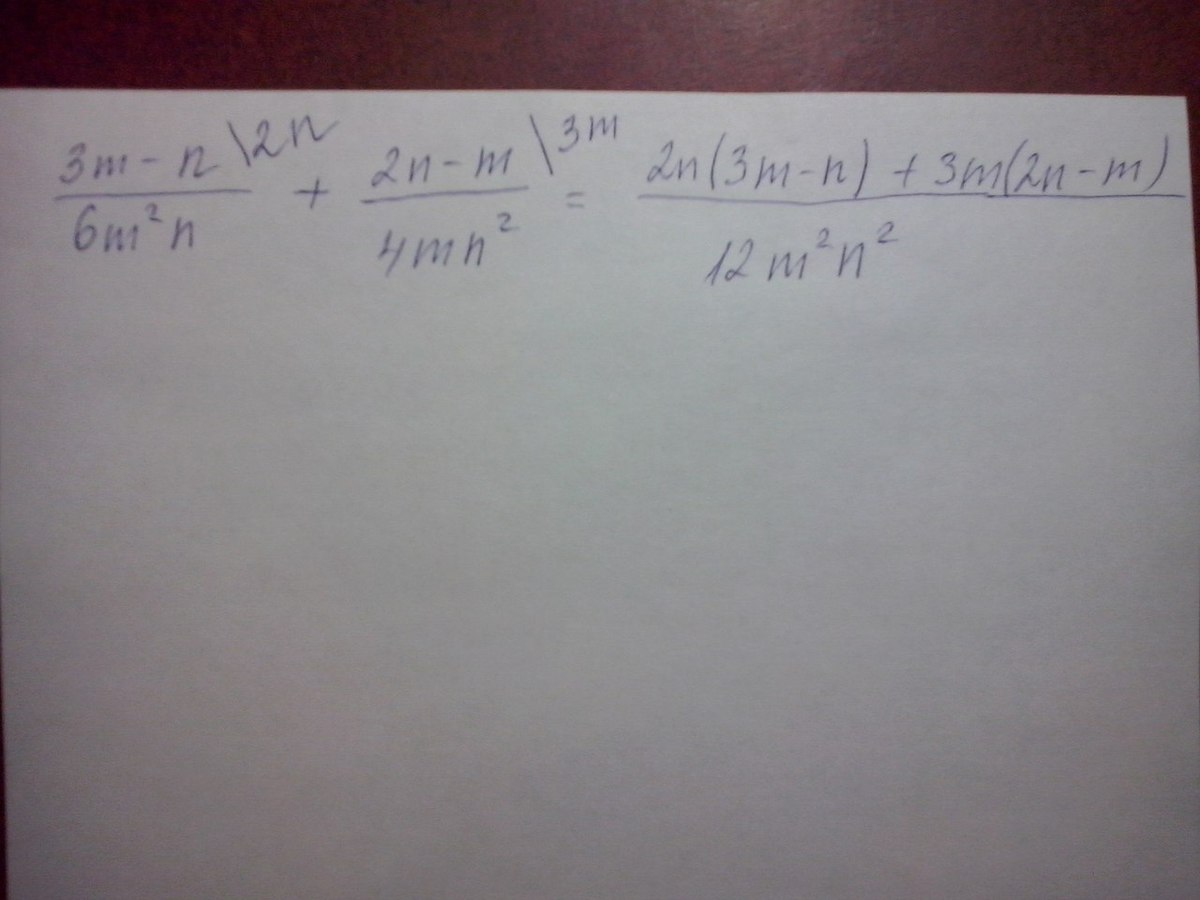 (3m - n)/(6m²n) \2n + (2n - m)/(4mn²) \3m = (2n(3m - n) + 3m(2n - m))/(12m²n²)